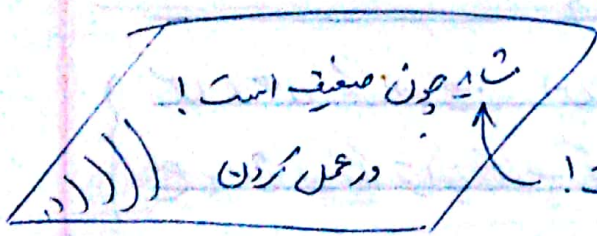 شاید چون ضعیف است!
در عمل کردن